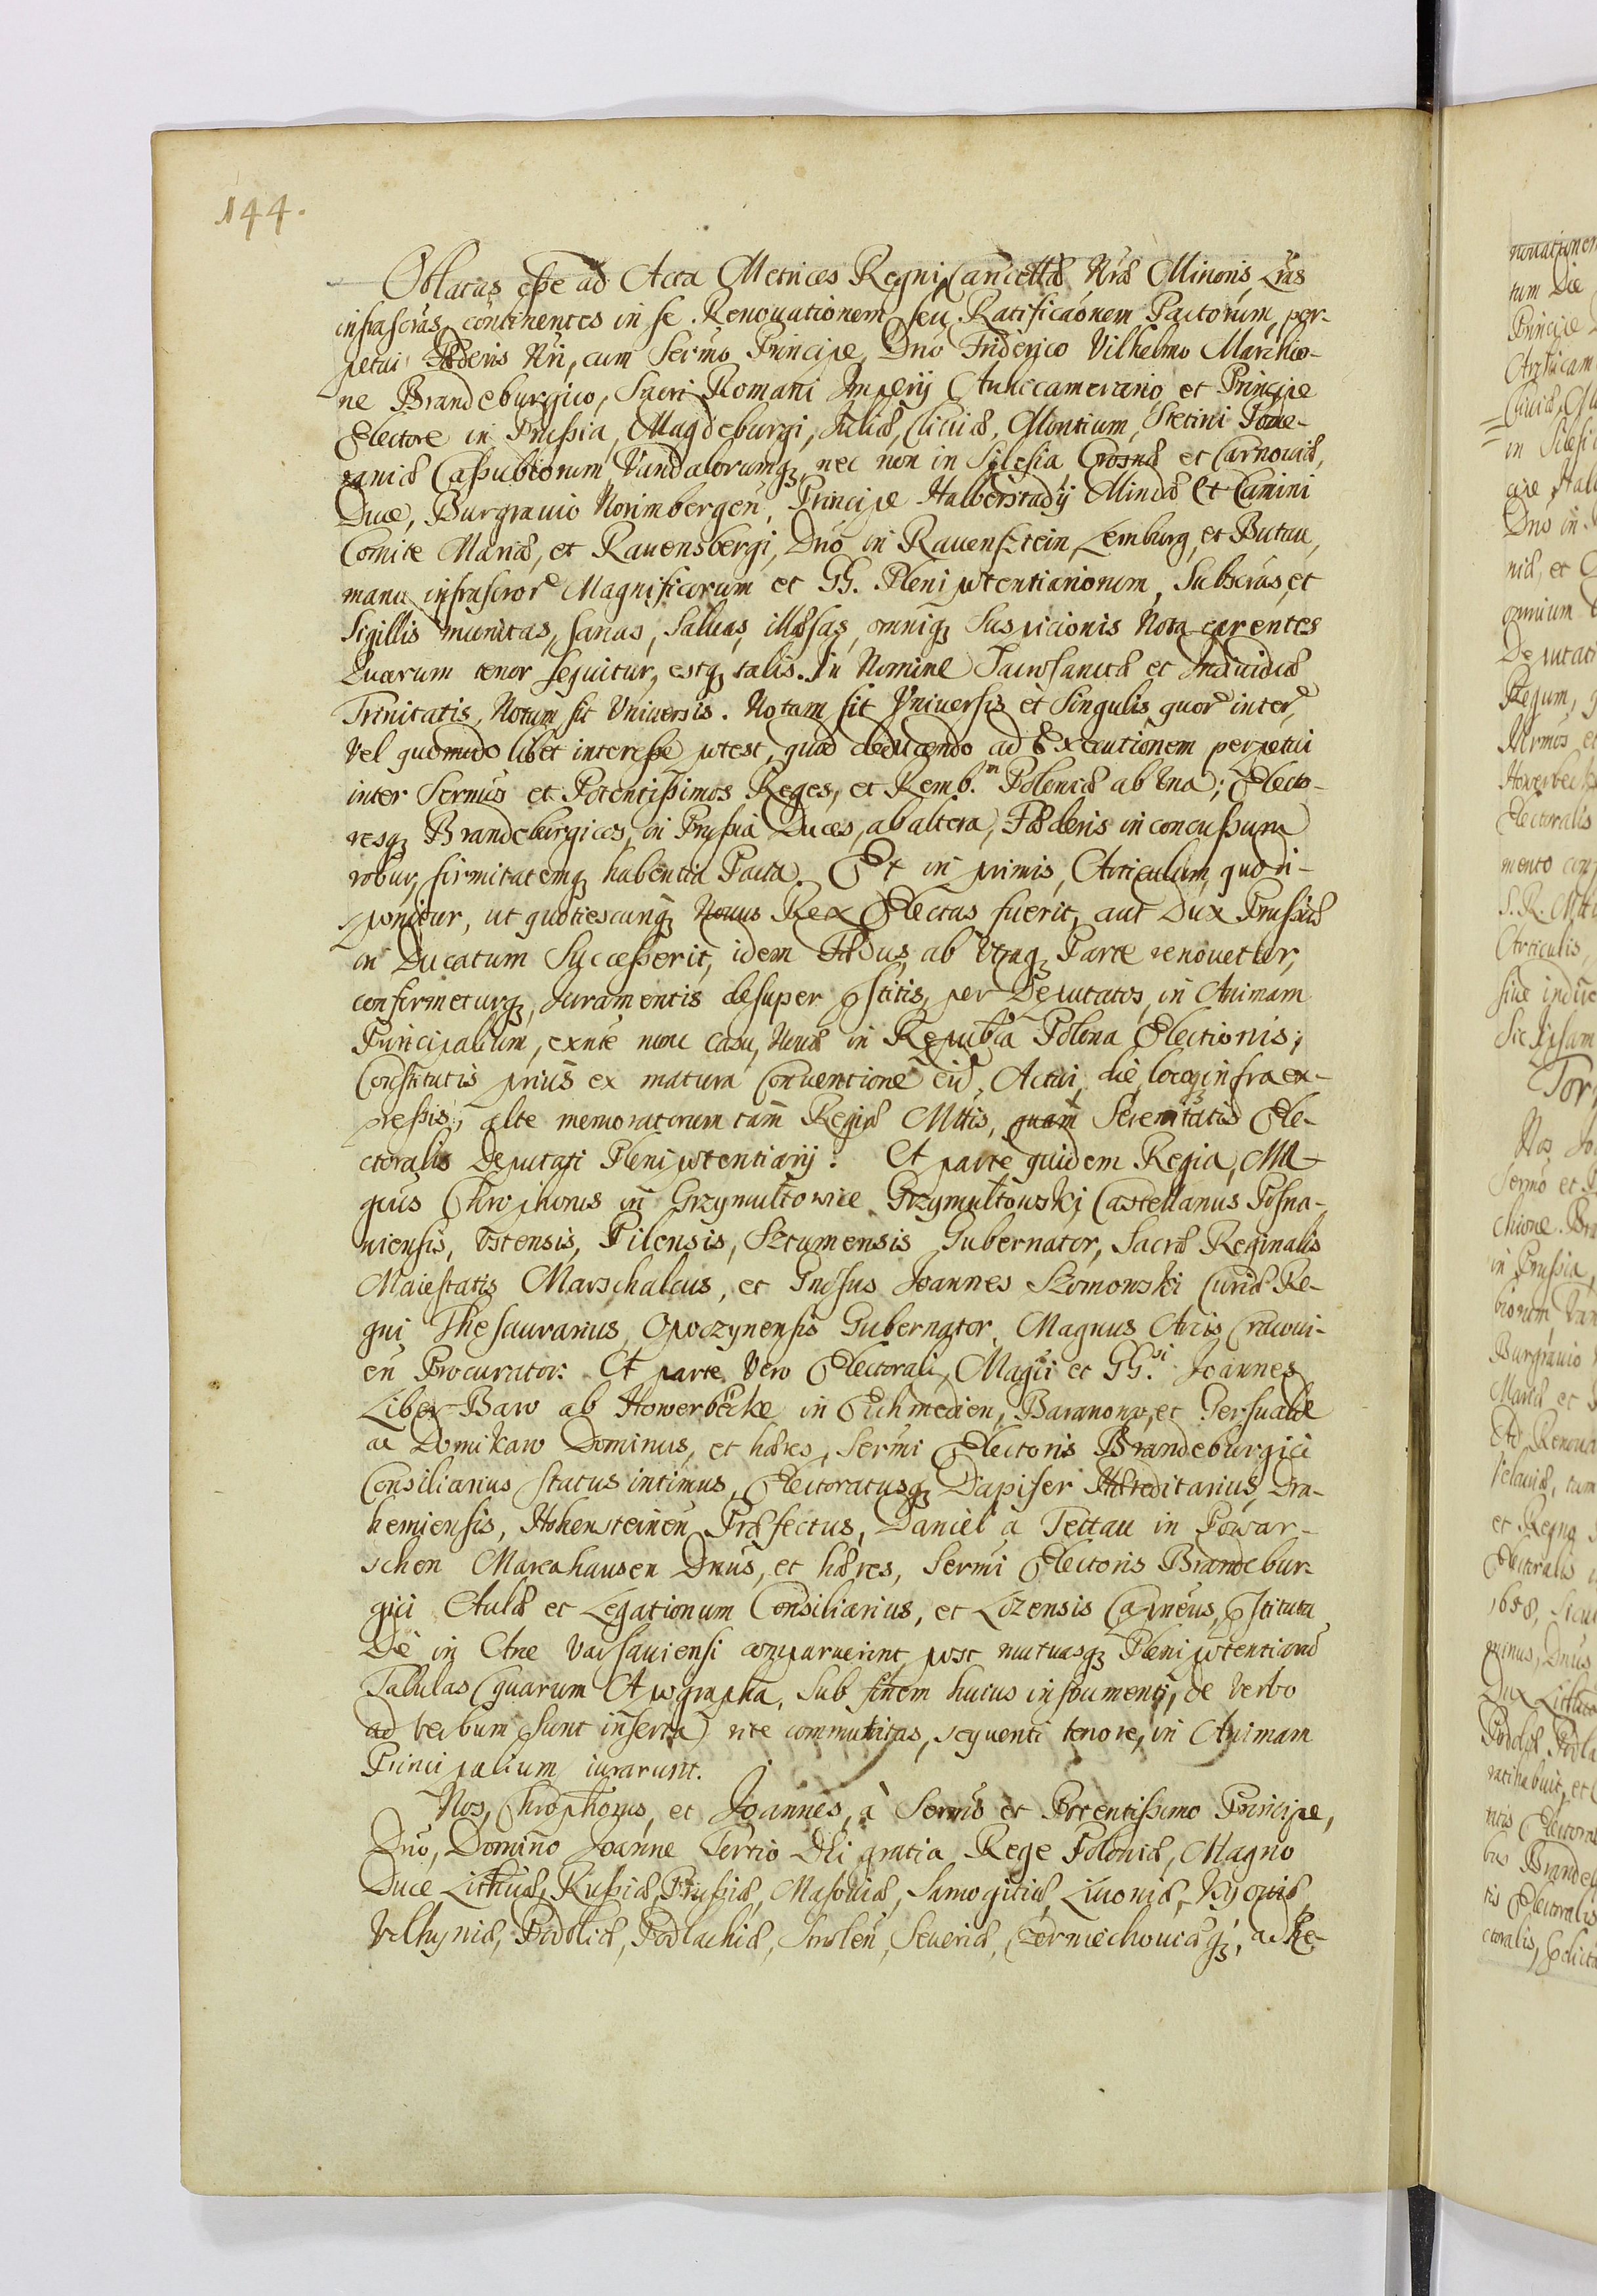 144.
Oblatas esse ad Acta Metrices Regni Cancellæ Nræ Minoris Lras
infrascras continentes in se Renouationem seu Ratificaõnem Pactorum, per-
petui Fæderis Nri, cum Sermo Principe Dno Friderico Vilhelmo Marchio-
ne Brandeburgico, Sacri Romani Imperij Archicamerario et Principe
Electore in Prussia, Magdeburgi, Juliæ, Cliuiæ, Montium, Stetini Pome-
raniæ Cassubiorum Vandalorumq, nec non in Silesia Crosnæ et Carnouiæ,
Duce, Burgrauio Norimbergen, Principe Halberstadij Mindæ et Camini
Comite Marciæ, et Rauensbergi, Dno in Rauensztein, Lemburg, et Butau,
manu infrascror Magnificorum et GG. Plenipotentiariorum, Subscras, et
Sigillis munitas, sanas, saluas, illæsas, omniq Suspicionis Nota carentes
Quarum tenor sequitur, estq talis. In Nomine Sacrosanctæ et Indiuiduæ
Trinitatis, Notum sit Vniuersis. Notum sit Vniuersis et Singulis quor inter,
vel quomodo libet interesse potest, quod deducendo ad Executionem perpetui
inter Sermos et Potentissimos Reges, et Remb.m Poloniæ ab Vna; Electo-
resq Brandeburgicos, in Prussia Duces, ab altera, Fæderis inconcussum
robur, firmitatemq habentia Pacta. Et in primis, Articulum, quo di-
sponitur, ut quotiescunq Nouus Rex Electus fuerit, aut Dux Prussiæ
in Ducatum Successerit, idem Fædus, ab Vtraq Parte renouetur,
confirmeturq, Juramentis desuper pstitis, per Deputatos, in Animam
Principalium, exnte nunc casu, Nouæ in Republa Polona Electionis;
Constitutis prius ex matura Conuentione eid, Actui, die locoq infra ex-
pressis; alte memoratorum tam Regiæ Mttis, quam Serenitatis Ele-
ctoralis Deputati Plenipotentiarij: Et parte quidem Regia, Ma-
gcus Chrophorus in Grzymultowice Grzymultowski, Castellanus Posna-
niensis, Vstensis, Pilensis, Sztumensis Gubernator, Sacræ Reginalis
Maiestatis Marschalcus, et Gnosus Joannes Szomowski Curiæ Re-
gni Thesaurarius, Opoczynensis Gubernator, Magnus Arcis Cracoui-
en Procurator: Et parte Vero Electorali, Magci et GG.si Joannes
Liber Baro ab Howerbecke in Eichmedien, Baranono, et Gersualde
ac Domikaw Dominus, et hæres, Sermi Electoris Brandeburgici
Consiliarius status intimus, Electoratusq Dapifer Hæreditarius, Dra-
hemiensis, Hohensteinen Præfectus, Daniel a Tettau in Powar-
schen Mareahausen Dnus, et hæres, Sermi Electoris Brandebur-
gici Aulæ et Legationum Consiliarius, et Lozensis Capneus, pstituta
Die in Arce Varsauiensi comparuerint, post mutuasq Plenipotentiaræ
Tabulas (quarum Apographa, sub finem huius instrumenti, de Verbo
ad Verbum sunt inserta) rite commutatas, sequenti tenore, in Animam
Principalium iurarunt.
Nos, Chrophorus, et Joannes, à Sermo et Potentissimo Principe,
Dno, Domino Joanne Tertio Dei gratia Rege Poloniæ, Magno
Duce Lithuæ, Russiæ, Prussiæ, Masouiæ, Samogitiæ, Liuoniæ, Kyouiæ,
Volhyniæ, Podoliæ, Podlachiæ, Smolen, Seueriæ, Czerniechouiæq, ac Re-